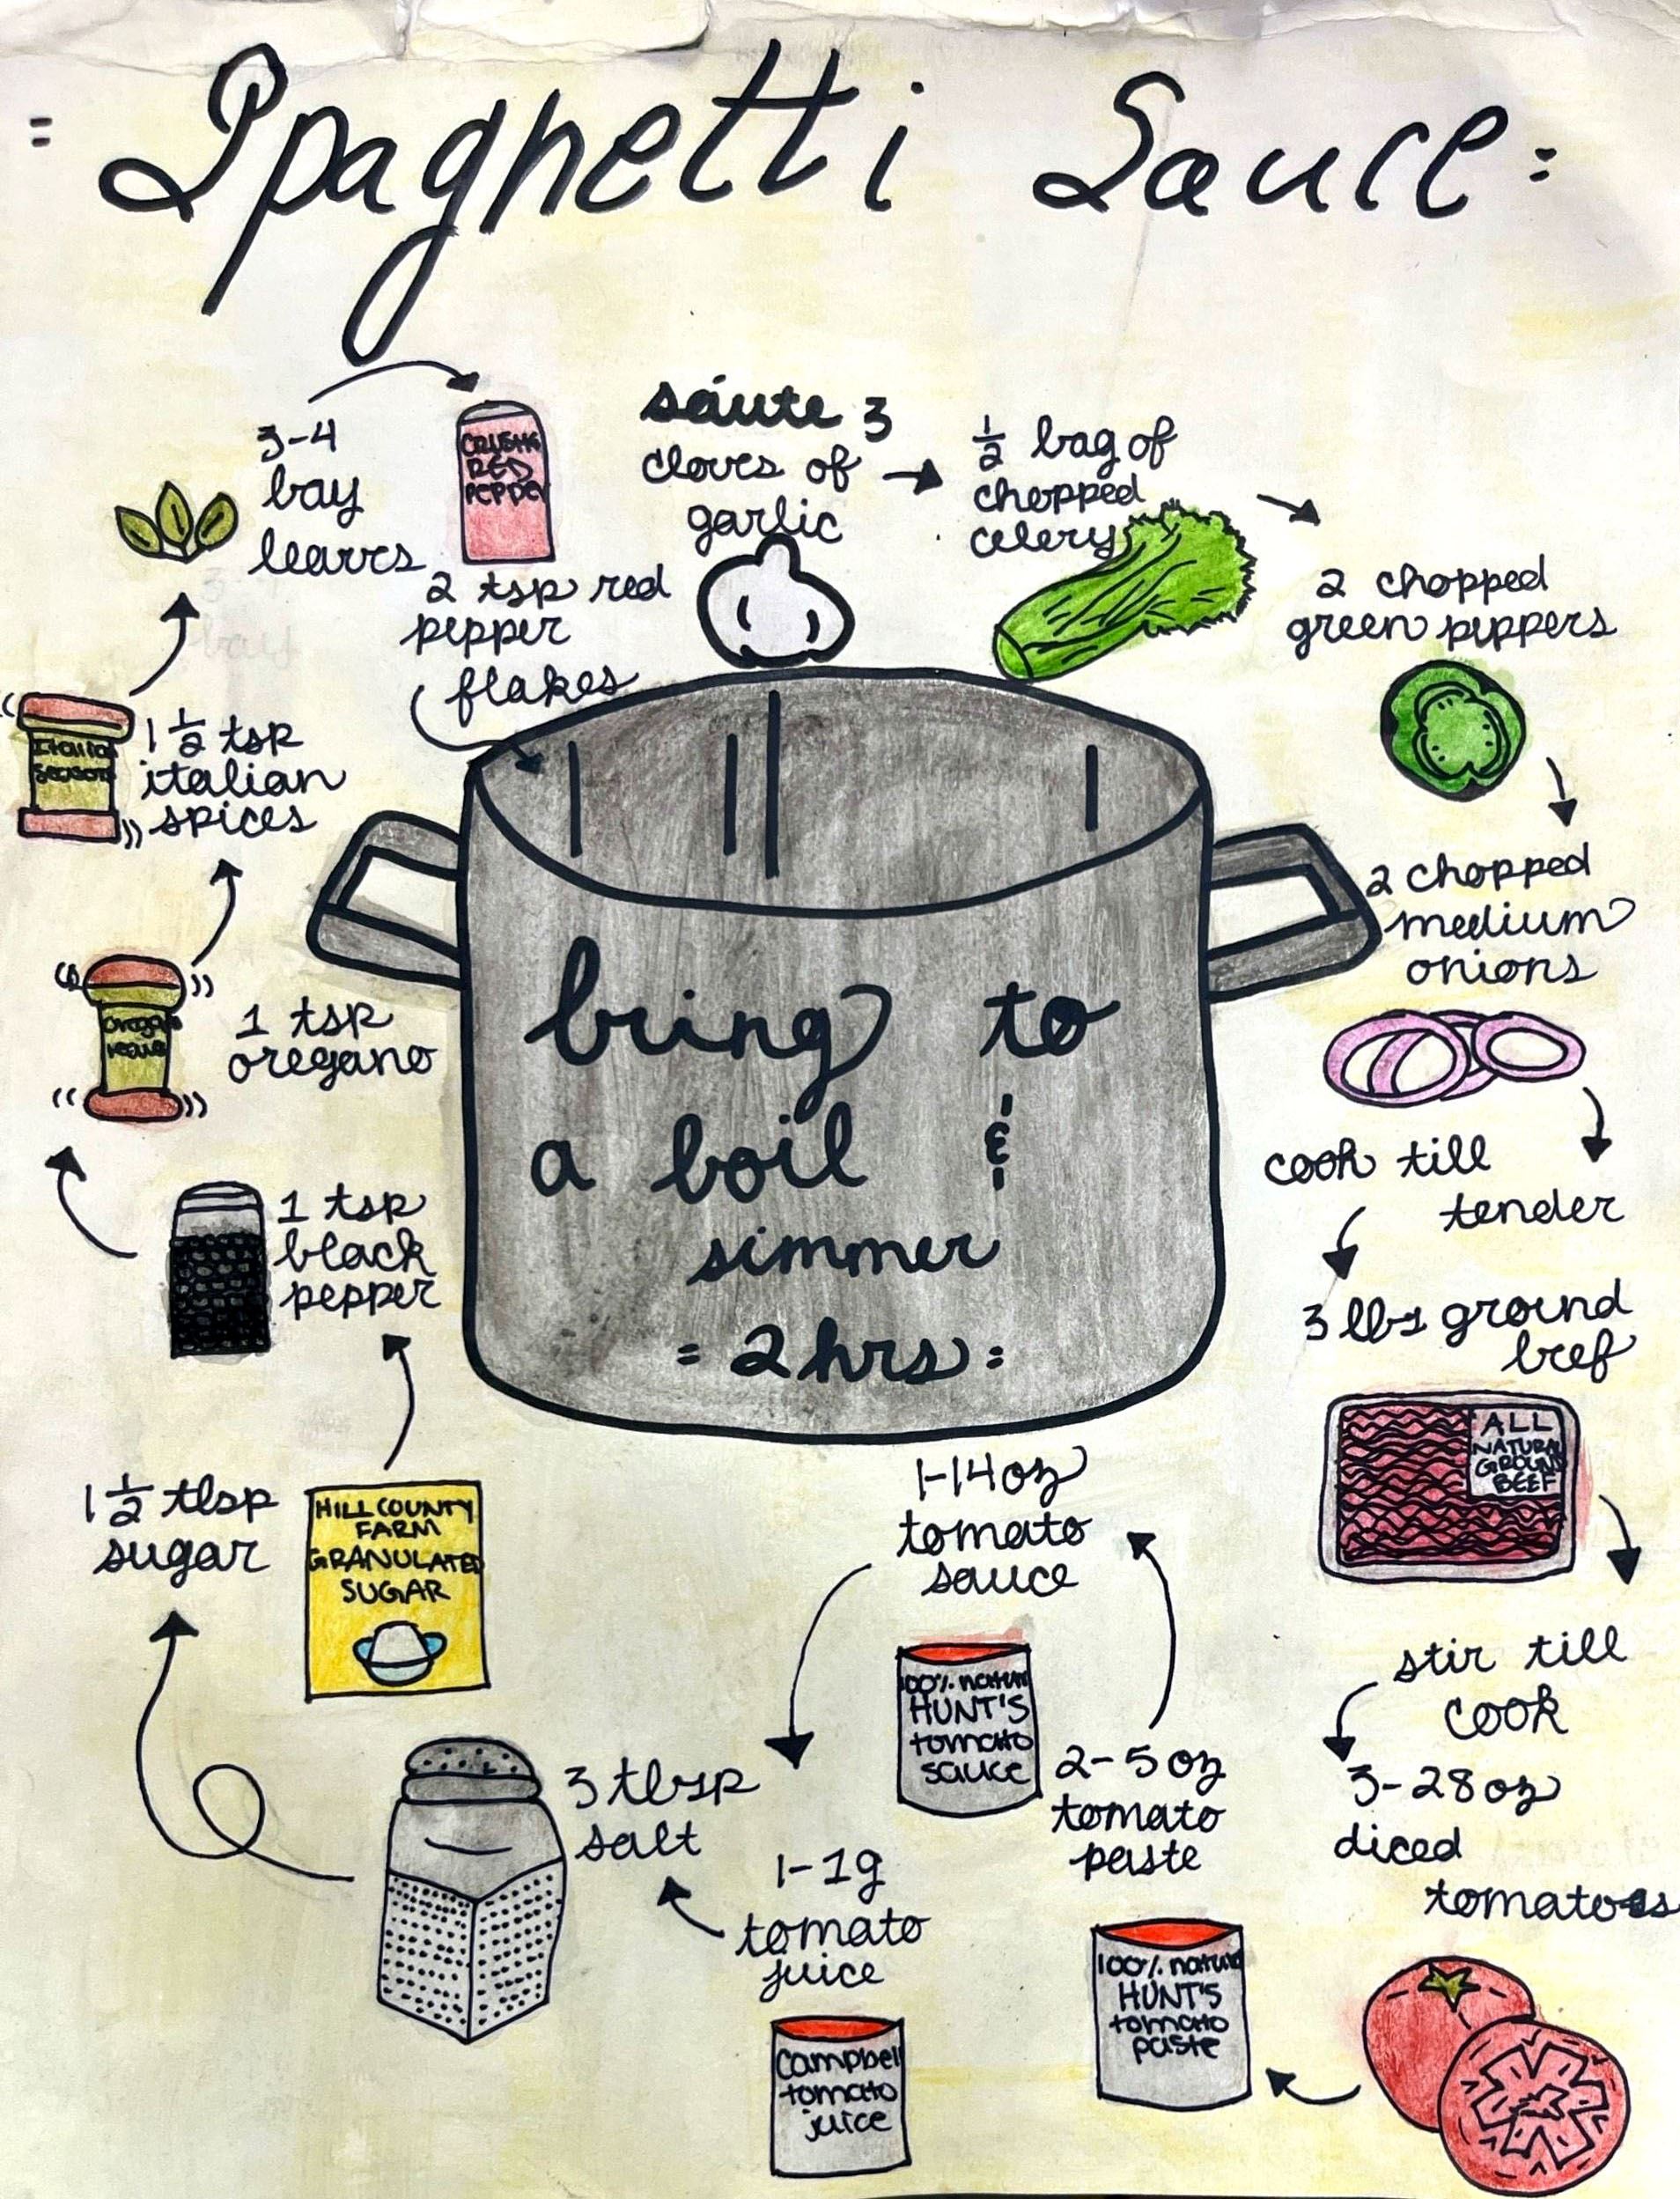 = Spaghetti Sauce =
saute 3
cloves of
garlic
1/2 bag of
chopped
celery
2 chopped
green peppers
2 chopped
medium
onions
cook till
tender
3 lbs ground
beef
ALL
NATURAL
GROUND
BEEF
stir till
cook
3-28oz
diced
tomatoes
2-5oz
tomato
paste
100% natural
HUNT'S
tomato
paste
1-14oz
tomato
sauce
100% natural
HUNT'S
tomato
sauce
1-1g
tomato
juice
Campbell
tomato
juice
3 tbsp
salt
1 1/2 tbsp
sugar
HILL COUNTY
FARM
GRANULATED
SUGAR
1 tsp
black
pepper
1 tsp
oregano
1 1/2 tsp
italian
spices
3-4
bay
leaves
CRUSHED
RED
PEPPER
2 tsp red
pepper
flakes
bring to
a boil &
simmer
= 2 hrs =